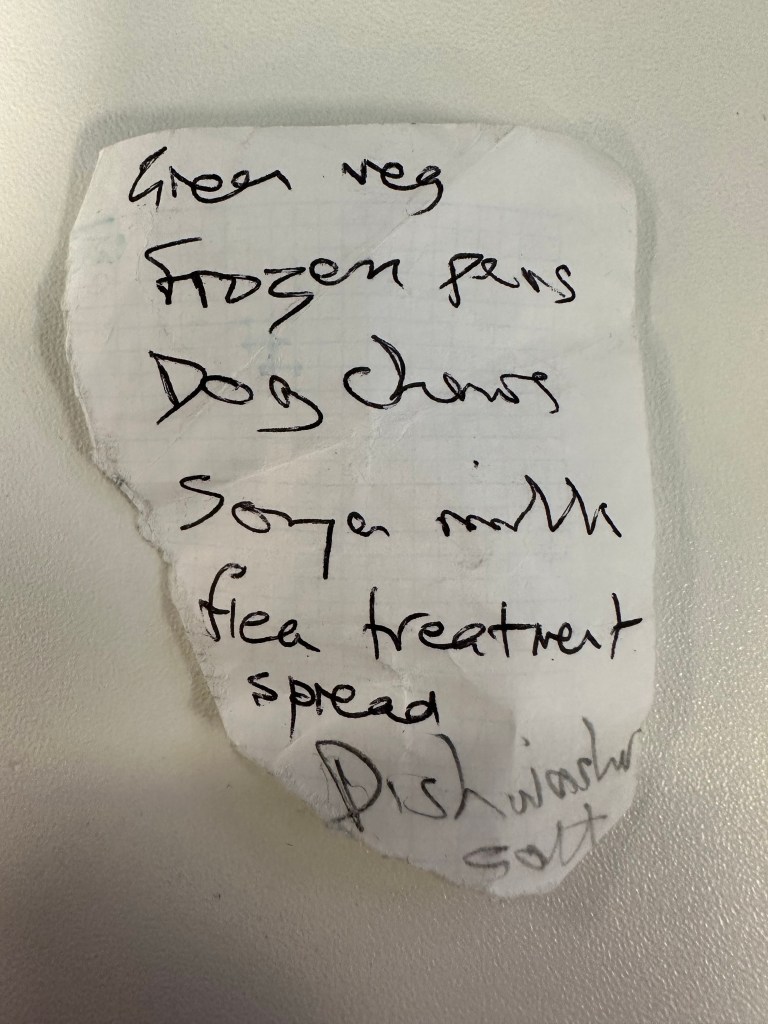 Green veg
Frozen peas
Dog chews
Soya milk
flea treatment
spread
Dishwasher
salt